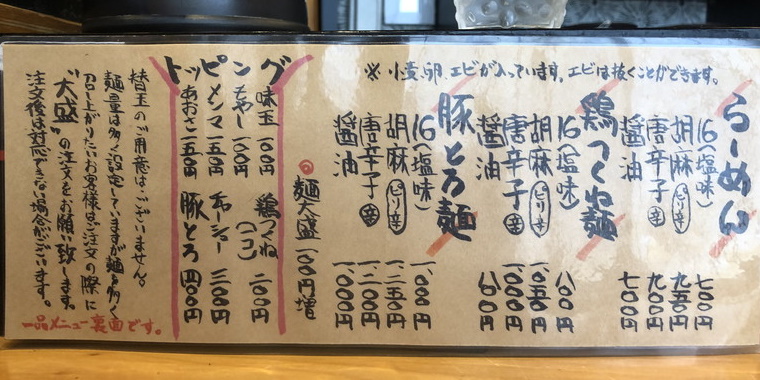 ※小麦、卵、エビが入っています。エビは抜くことができます。
らーめん
16(塩味) 七〇〇円
胡麻(ピリ辛) 九五〇円
唐辛子(辛) 九〇〇円
醤油 七〇〇円
鶏つくね麺
16(塩味) 八〇〇円
胡麻(ピリ辛) 一、〇五〇円
唐辛子(辛) 一、〇〇〇円
醤油 八〇〇円
豚とろ麺
16(塩味) 一、〇〇〇円
胡麻(ピリ辛) 一、二五〇円
唐辛子(辛) 一、二〇〇円
醤油 一、〇〇〇円
◎麺大盛 一〇〇円増
トッピング
味玉 一〇〇円 鶏つくね(一コ) 二〇〇円
もやし 一〇〇円 チャーシュー 三〇〇円
メンマ 一五〇円
あおさ 一五〇円 豚とろ 四〇〇円
替玉のご用意はございません。
麺量は多く設定していますが麺を多く
召し上がりたいお客様はご注文の際に
"大盛"の注文をお願い致します。
注文後は対応できない場合がございます。
一品メニュー裏面です。